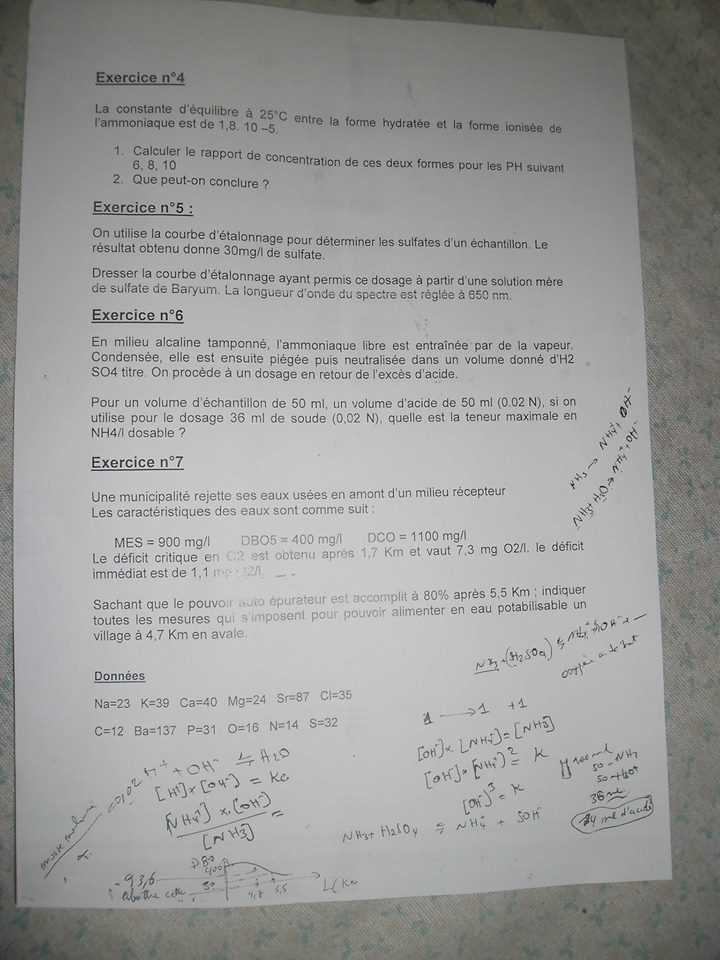 Exercice n°4
La constante d'équilibre à 25°C entre la forme hydratée et la forme ionisée de
l'ammoniaque est de 1,8. 10 –5.
1. Calculer le rapport de concentration de ces deux formes pour les PH suivant
6, 8, 10
2. Que peut-on conclure ?
Exercice n°5 :
On utilise la courbe d'étalonnage pour déterminer les sulfates d'un échantillon. Le
résultat obtenu donne 30mg/l de sulfate.
Dresser la courbe d'étalonnage ayant permis ce dosage à partir d'une solution mère
de sulfate de Baryum. La longueur d'onde du spectre est réglée à 650 nm.
Exercice n°6
En milieu alcaline tamponné, l'ammoniaque libre est entraînée par de la vapeur.
Condensée, elle est ensuite piégée puis neutralisée dans un volume donné d'H2
SO4 titre. On procède à un dosage en retour de l'excès d'acide.
Pour un volume d'échantillon de 50 ml, un volume d'acide de 50 ml (0.02 N), si on
utilise pour le dosage 36 ml de soude (0,02 N), quelle est la teneur maximale en
NH4/l dosable ?
Exercice n°7
Une municipalité rejette ses eaux usées en amont d'un milieu récepteur
Les caractéristiques des eaux sont comme suit :
MES = 900 mg/l DBO5 = 400 mg/l DCO = 1100 mg/l
Le déficit critique en O2 est obtenu après 1,7 Km et vaut 7,3 mg O2/l. le déficit
immédiat est de 1,1 mg O2/l.
Sachant que le pouvoir auto épurateur est accomplit à 80% après 5,5 Km ; indiquer
toutes les mesures qui s'imposent pour pouvoir alimenter en eau potabilisable un
village à 4,7 Km en avale.
Données
Na=23 K=39 Ca=40 Mg=24 Sr=87 Cl=35
C=12 Ba=137 P=31 O=16 N=14 S=32
NH3 → NH4+, OH-
NH3 + H2O → NH4+ + OH-
NH3 + (H2SO4) ⇆ NH4+
1 → 1 +1
[OH-] x [NH4+] = [NH3]
[OH-] x [NH4+]² = K
[OH-]³ = K
NH3 + H2SO4 ⇆ NH4+ + SOH-
50 - NH3
36 ml
H+ + OH- ⇆ H2O
[H+] x [OH-] = Kc
[NH4+] x [OH-] =
[NH3]
DBO
400
80
4,7 5,5 L(Km
93,6